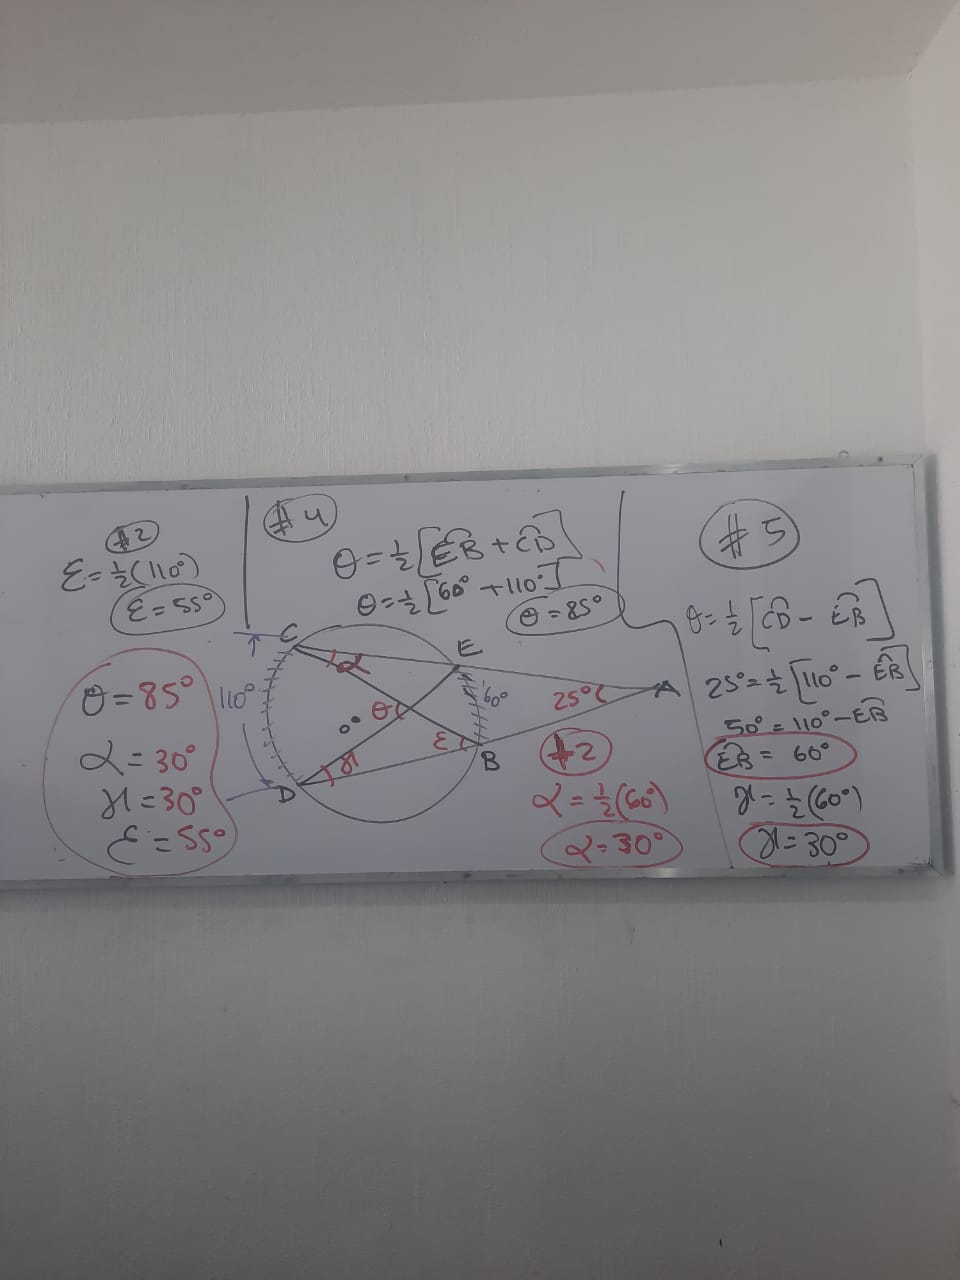 #2
ε = ½(110°)
ε = 55°
θ = 85°
α = 30°
γ = 30°
ε = 55°
#4
θ = ½[EB + CD]
θ = ½[60° + 110°]
θ = 85°
C
E
α
110°
60°
25°
A
θ
ε
γ
B
D
#2
α = ½(60°)
α = 30°
#5
θ = ½[CD - EB]
25° = ½[110° - EB]
50° = 110° - EB
EB = 60°
γ = ½(60°)
γ = 30°